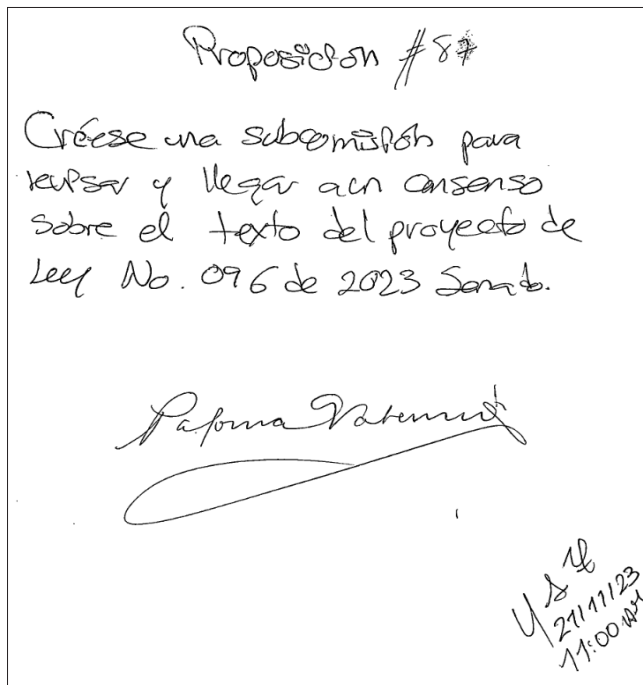 Proposición #87
Créese una subcomisión para
revisar y llegar a un consenso
sobre el texto del proyecto de
Ley No. 096 de 2023 Senado.
Paloma Valencia
21/11/23
11:00 AM